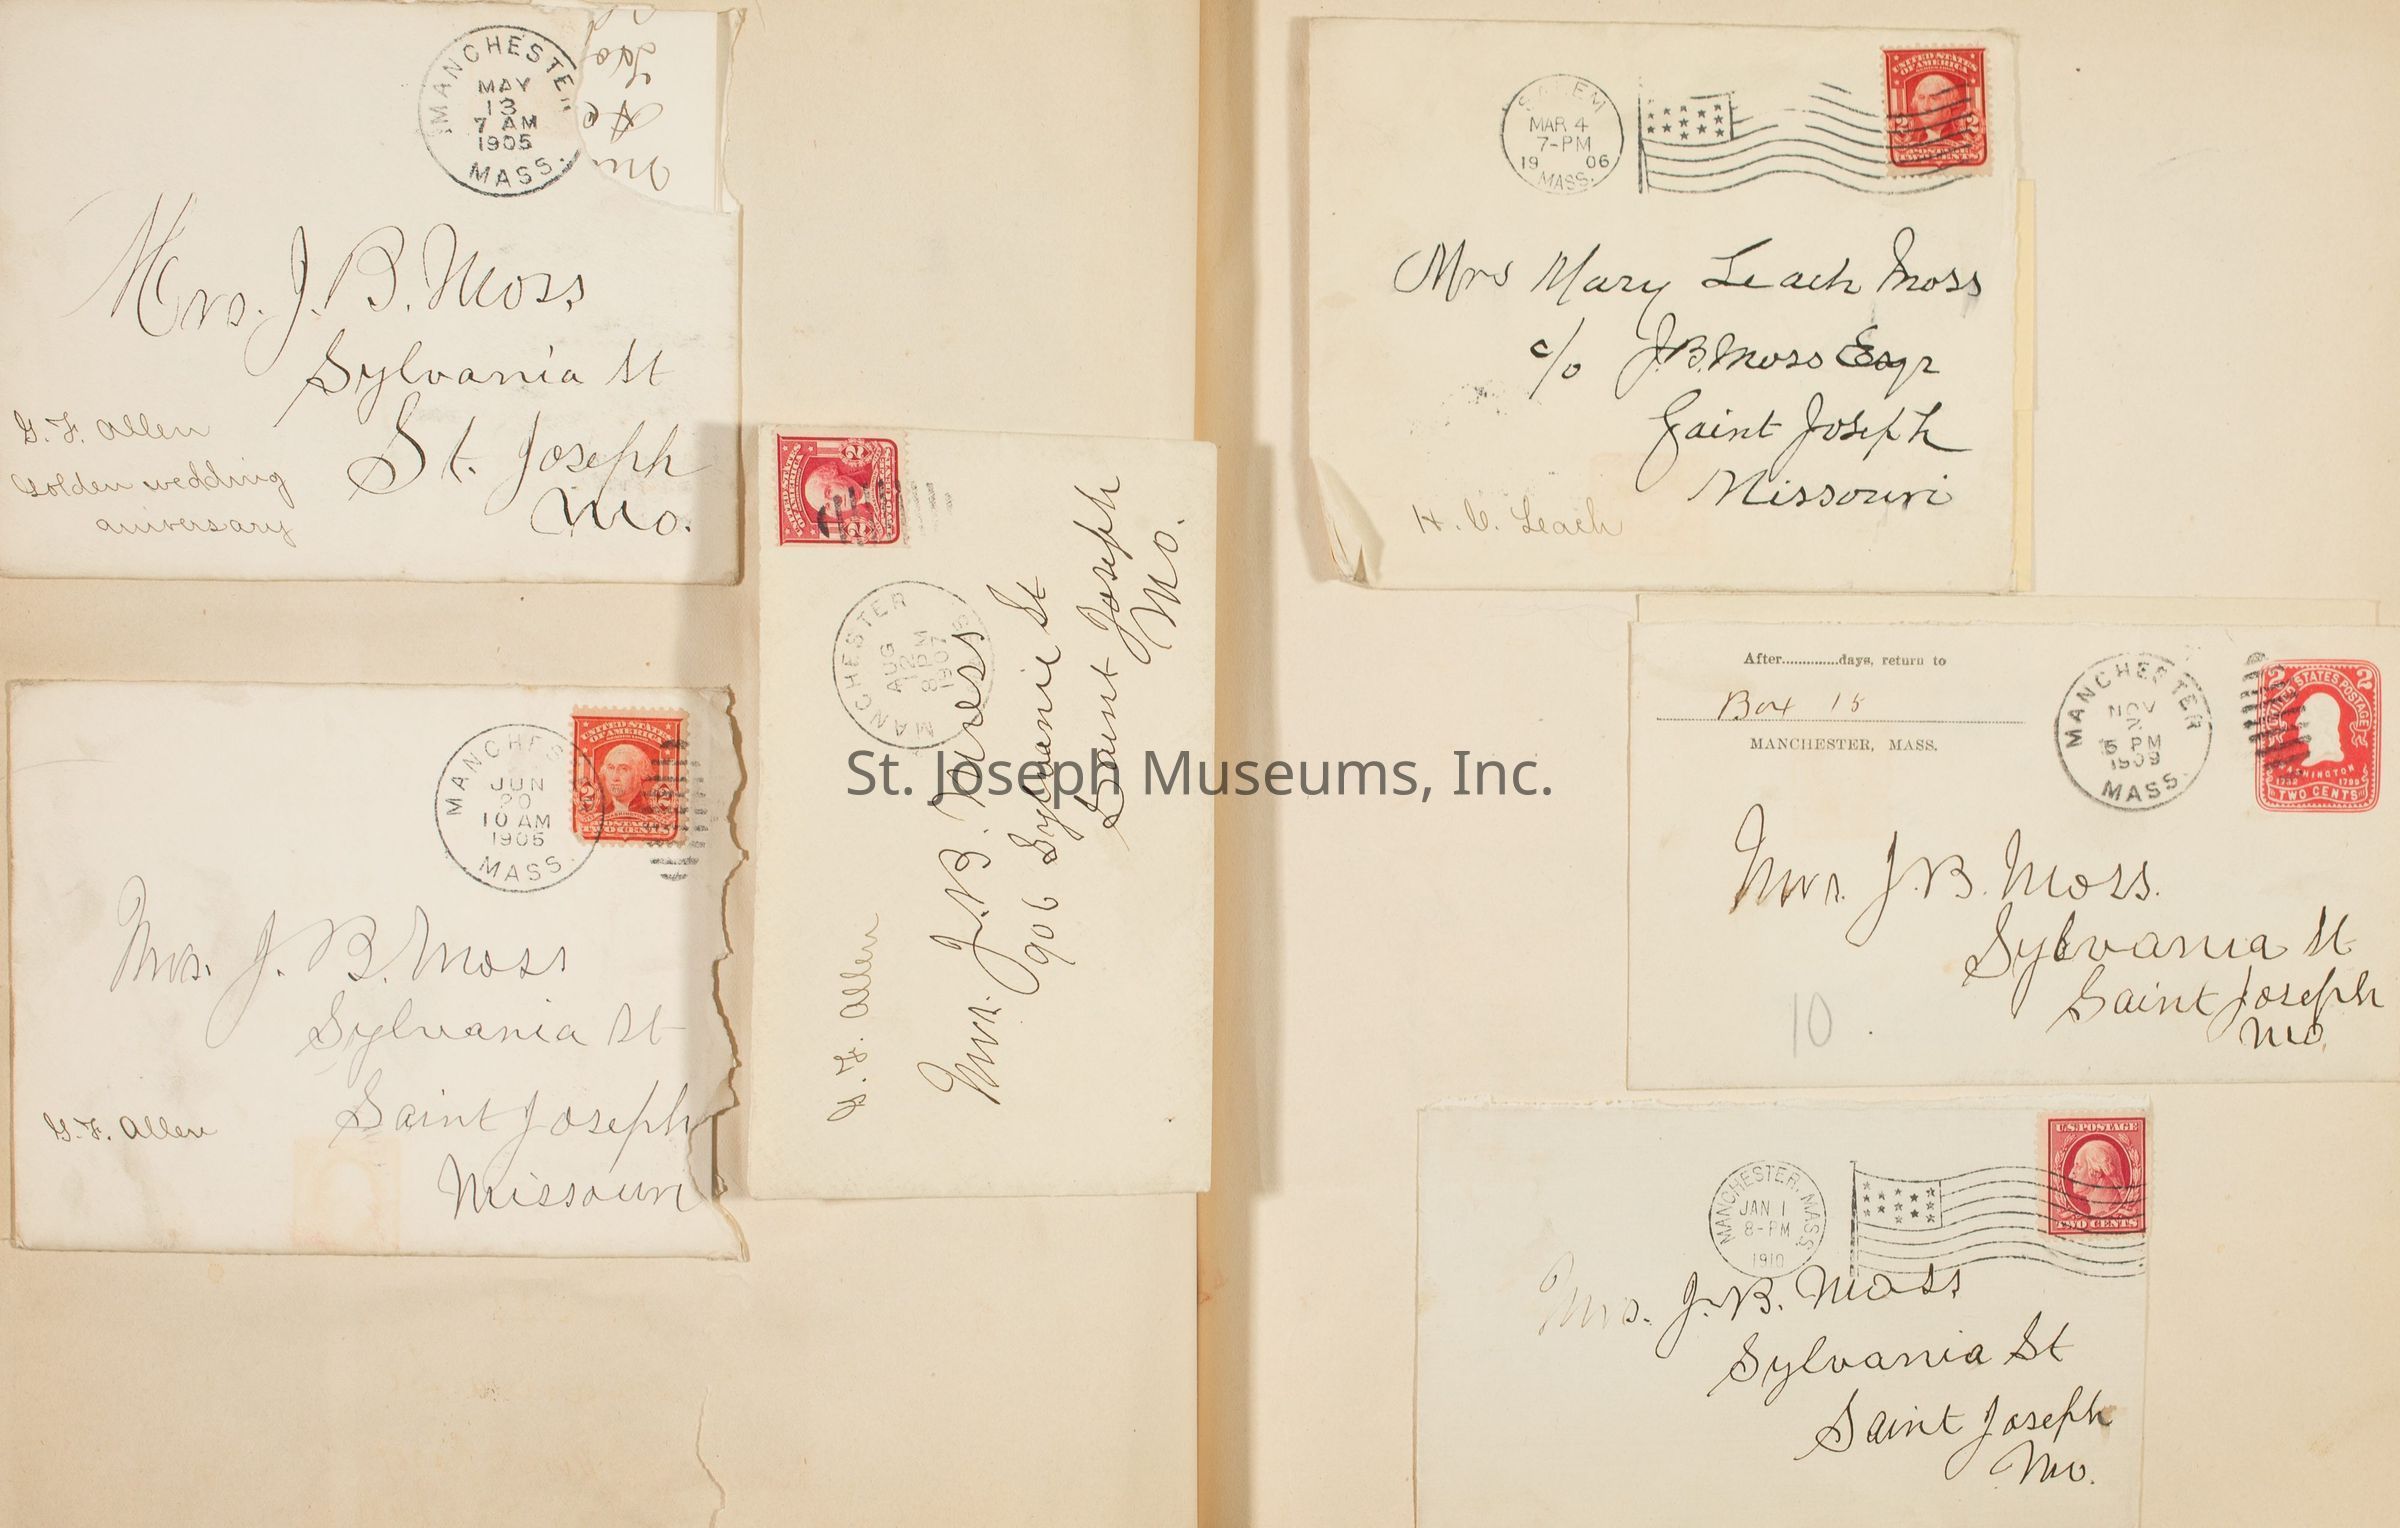 MANCHESTER
MAY
13
7 AM
1905
MASS.
Mrs. J. B. Moss
Sylvania St
St. Joseph
Mo.
G. F. Allen
Golden wedding
aniversary
MANCHES
JUN
20
10 AM
1905
MASS
UNITED STATES
OF AMERICA
2 2
POSTAGE
TWO CENTS
Mrs. J. B. Moss
Sylvania St
Saint Joseph
Missouri
G. F. Allen
UNITED STATES
OF AMERICA
2 2
TWO CENTS
MANCHESTER
AUG
12
8 PM
1907
MA
Mrs. J. B. Moss
906 Sylvanie St
Saint Joseph
Mo.
G. F. Allen
SALEM
MAR 4
7-PM
19 06
MASS.
UNITED STATES
OF AMERICA
2 2
POSTAGE
TWO CENTS
Mrs Mary Leach Moss
c/o J.B. Moss Esqr
Saint Joseph
Missouri
H. C. Leach
After.............days, return to
Box 15
MANCHESTER, MASS.
MANCHESTER
NOV
2
5 PM
1909
MASS.
2 STATES POSTAGE 2
WASHINGTON
1732 1799
TWO CENTS
Mrs. J. B. Moss.
Sylvania St
Saint Joseph
Mo.
10
MANCHESTER, MASS.
JAN 1
8-PM
1910
U.S. POSTAGE
TWO CENTS
Mrs. J. B. Moss
Sylvania St
Saint Joseph
Mo.
St. Joseph Museums, Inc.